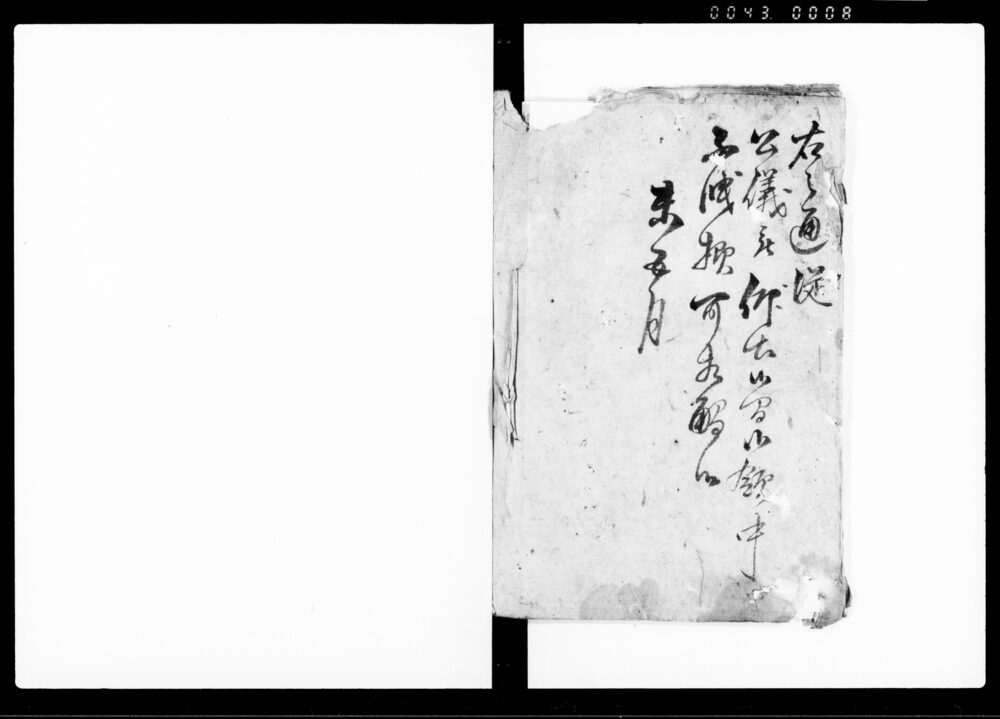 0043. 0008
右之通従
公儀被仰出候間御領中
不洩様可相觸候
未五月